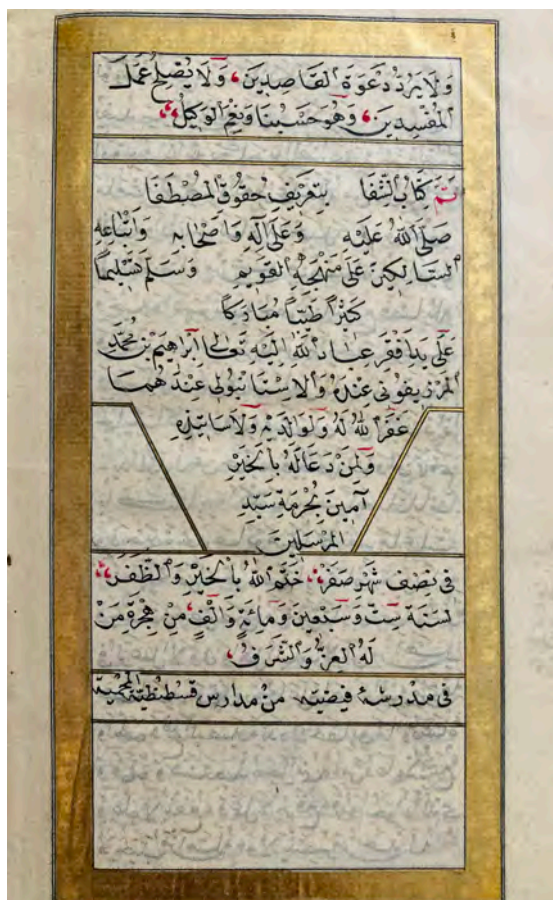 وَلَا يَرُدُّ دَعْوَةَ الْقَاصِدِينَ، وَلَا يُصْلِحُ عَمَلَ
الْمُفْسِدِينَ، وَهُوَ حَسْبُنَا وَنِعْمَ الْوَكِيلُ،
تَمَّ كِتَابُ الشِّفَا بِتَعْرِيفِ حُقُوقِ الْمُصْطَفَا
صَلَّى اللهُ عَلَيْهِ وَعَلَى آلِهِ وَأَصْحَابِهِ وَأَتْبَاعِهِ
السَّالِكِينَ عَلَى مَنْهَجِهِ الْقَوِيمِ وَسَلَّمَ تَسْلِيمًا
كَثِيرًا طَيِّبًا مُبَارَكًا
عَلَى يَدِ أَفْقَرِ عِبَادِ اللهِ إِلَيْهِ تَعَالَى إِبْرَاهِيمَ بْنِ مُحَمَّد
الْمَرْزِيفُونِي عِنْدَهُ وَالْإِسْتَانْبُولِي عِنْدَهُمَا
غَفَرَ اللهُ لَهُ وَلِوَالِدَيْهِ وَلِأَسَاتِذِهِ
وَلِمَنْ دَعَا لَهُ بِالْخَيْرِ
آمِينَ بِحُرْمَةِ سَيِّدِ
الْمُرْسَلِينَ
فِى نِصْفِ شَهْرِ صَفَرْ، خَتَمَ اللهُ بِالْخَيْرِ وَالظَّفَرْ،
لِسَنَةِ سِتٍّ وَسَبْعِينَ وَمِائَةٍ وَأَلْفٍ، مِنْ هِجْرَةِ مَنْ
لَهُ الْعِزُّ وَالشَّرَفُ،
فِى مَدْرَسَهٔ فيضيّه مِنْ مَدَارِسِ قُسْطَنْطِنِيَّةِ الْمَحْمِيَّة